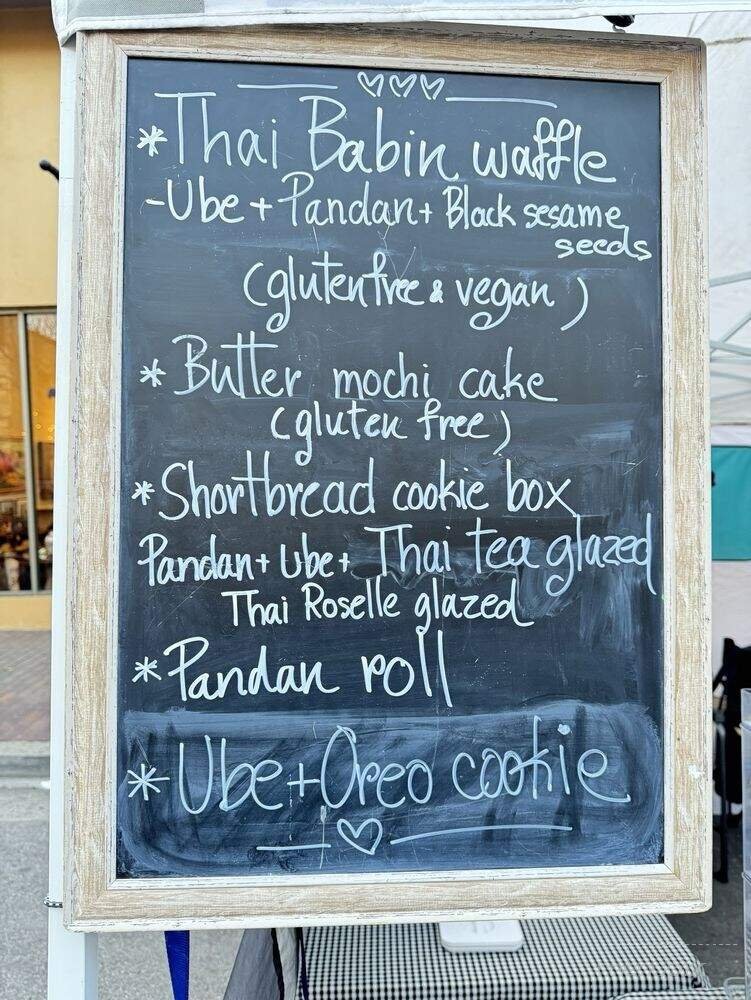 * Thai Babin waffle
- Ube + Pandan + Black sesame
seeds
(gluten free & vegan)
* Butter mochi cake
(gluten free)
* Shortbread cookie box
Pandan + Ube + Thai tea glazed
Thai Roselle glazed
* Pandan roll
* Ube + Oreo cookie